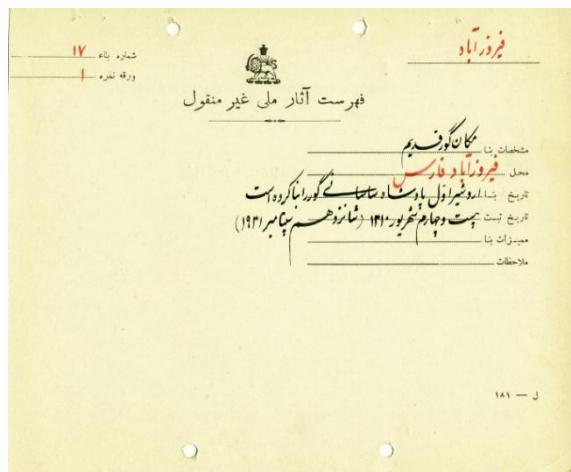 فیروزآباد
شماره بناء ۱۷
ورقه نمره ۱
فهرست آثار ملی غیر منقول
مشخصات بنا مکان گور قدیم
محل فیروزآباد فارس
تاریخ بنا اردشیر اول پادشاه ساسانی گور را بنا کرده است
تاریخ ثبت بیست و چهارم شهریور ۱۳۱۰ (شانزدهم سپتامبر ۱۹۳۱)
ممیزات بنا
ملاحظات
ل — ۱۸۱